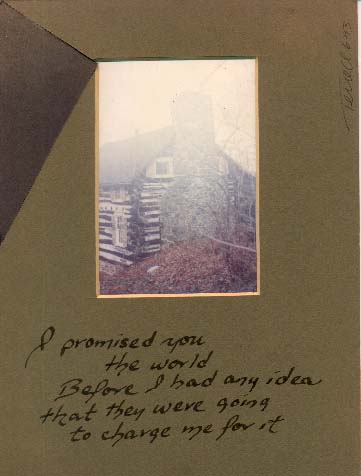 I promised you
the world
Before I had any idea
that they were going
to charge me for it